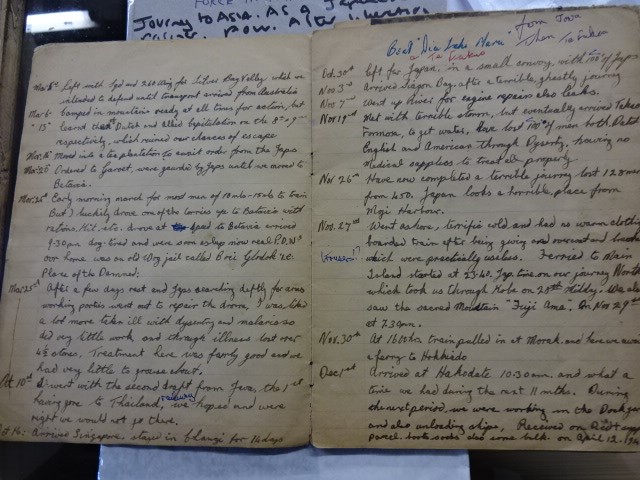 FORCE IN
Journey to ASIA. As a Japanese
P.O.W. After
Mar 5th left with Sqd and 260 Wing for Selous Bay Valley which we
intended to defend until transport arrived from Australia
Mar 6- camped in mountains ready at all times for action, but
" 13" learnt that Dutch and Allied Capitulation on the 8th + 9th
respectively, which ruined our chances of escape
Mar 16 Moved into a tea plantation to await order from the Japs
Mar 20 Ordered to Garoet, were guarded by Japs until we moved to
Batavia.
Mar 22nd Early morning march for most men of 10 mls-15 mls to train
But I luckily drove one of the lorries up to Batavia with
rations, Kit, etc. drove at speed to Batavia arrived
9.30pm dog tired and were soon asleep now real P.O.W's
our home was an old Wog jail called Boie Glodok i.e.
Place of the Damned.
Mar 23rd After a few days rest and Japs searching deftly for arms
working parties went out to repair the drome, I was like
a lot more taken ill with dysentry and malaria so
did very little work and through illness lost over
4½ stones. Treatment here was fairly good and we
had very little to grouse about.
Oct 10th I went with the second draft from Java, the 1st
having gone to Thailand, railway we hopes and were
right we would not go there.
Oct 14: Arrived Singapore, stayed in Changi for 14 days
from Java
Boat "Dia Itchi Maru" then to
Oct. 30th left for Japan, in a small convoy, with Japs
Nov 3rd Arrived Saigon Bay, after a terrible, ghastly journey
Nov 7th Went up River for engine repairs also leaks.
Nov 19th Met with terrible storm, but eventually arrived Takao
Formosa, to get water, have lost men both Dutch
English and American through Dysentry, having no
Medical supplies to treat em properly.
Nov 26th Have now completed a terrible journey lost 128 men
from 450. Japan looks a horrible place from
Moji Harbour.
Nov. 27th Went ashore, terrific cold, and had no warm clothing
boarded train after being given overcoat and
which were practically useless. Ferried to Main
Island started at Jap time on our journey North
which took us through Kobe on 28th Midday. We also
saw the sacred Mountain "Fuji Ama". On Nov 29th
at 7.30am.
Nov. 30th At 1610hrs train pulled in at and here we await
a ferry to Hokkaido
Dec 1st Arrived at Hakodate 10.30am. and what a
time we had during the next 11 mths. During
the next period, we were working in the Dockyard
and also unloading ships, Received on Red
parcel. boots socks also some bulk. on April 12. 194